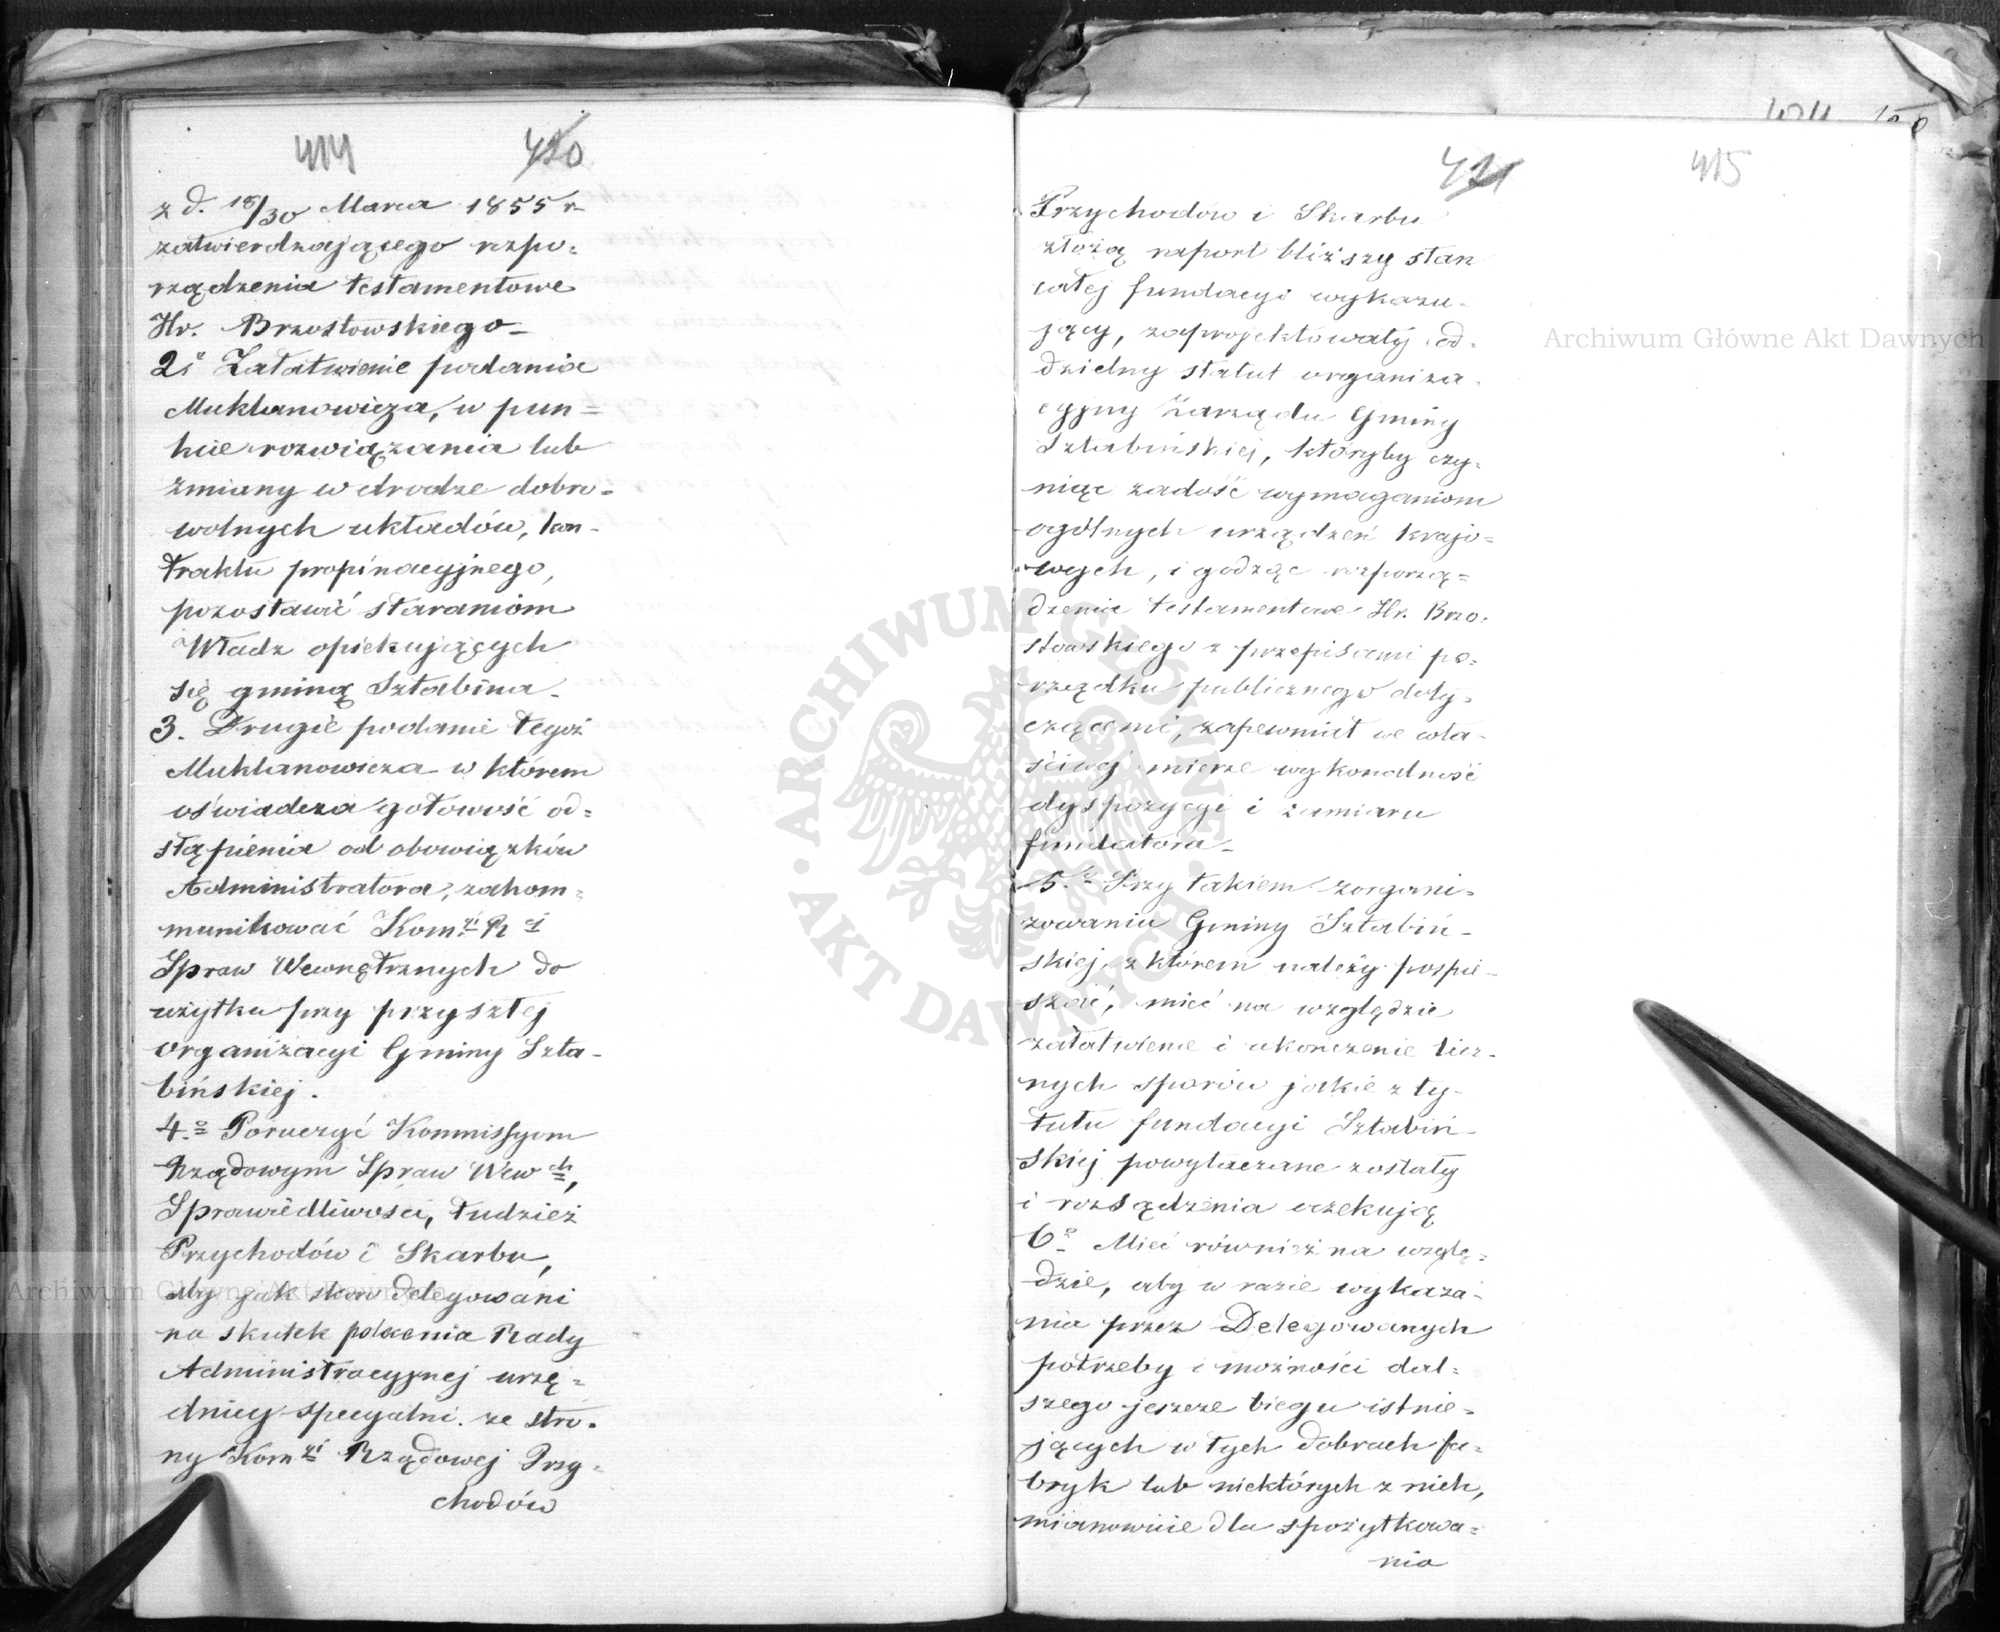 414 420
z d. 18/30 Marca 1855 r.
zatwierdzającego rozpo=
rządzenia testamentowe
Hr. Brzostowskiego_
2. Załatwienie podania
Muklanowicza, w pun=
kcie rozwiązania lub
zmiany w drodze dobro=
wolnych układów, kon-
traktu propinacyjnego,
pozostawić staraniom
Władz opiekujących
się gminą Sztabina_
3. Drugie podanie tegoż
Muklanowicza w którem
oświadcza gotowość od=
stąpienia od obowiązków
Administratora, zakom=
munikować Kom:yi R:ej
Spraw Wewnętrznych do
użytku przy przyszłej
organizacyi Gminy Szta-
bińskiej.
4.o Poruczyć Kommissyom
Rządowym Spraw Wewch,
Sprawiedliwości, tudzież
Przychodów i Skarbu,
aby jak skoro delegowani
na skutek polecenia Rady
Administracyjnej urzę=
dnicy specyalni ze stro-
ny Kom:yi Rządowej Przy-
chodów
421 415
Przychodów i Skarbu
złożą raport bliższy stan
całej fundacyi wykazu-
jący, zaprojektowały od-
dzielny statut organiza-
cyjny Zarządu Gminy
Sztabińskiej, któryby czy-
niąc zadość wymaganiom
ogólnych urządzeń krajo=
wych, i godząc rozporzą=
dzenia testamentowe Hr. Brzo-
stowskiego z przepisami po-
rządku publicznego doty-
czącemi, zapewniał we wła-
ściwej mierze wykonalność
dyspozycyi i zamiaru
fundatora_
5.o Przy takiem zorgani-
zowaniu Gminy Sztabiń-
skiej, z którem należy pospie-
szać, mieć na względzie
załatwienie i ukończenie licz-
nych sporów jakie z ty-
tułu fundacyi Sztabiń-
skiej powytaczane zostały
i rozsądzenia oczekują
6o Mieć również na wzglę-
dzie, aby w razie wykaza-
nia przez Delegowanych
potrzeby i możności dal=
szego jeszcze biegu istnie=
jących w tych dobrach fa-
bryk lub niektórych z nich,
mianowicie dla spożytkowa=
nia
Archiwum Główne Akt Dawnych
Archiwum Główne Akt Dawnych
ARCHIWUM GŁÓWNE AKT DAWNYCH